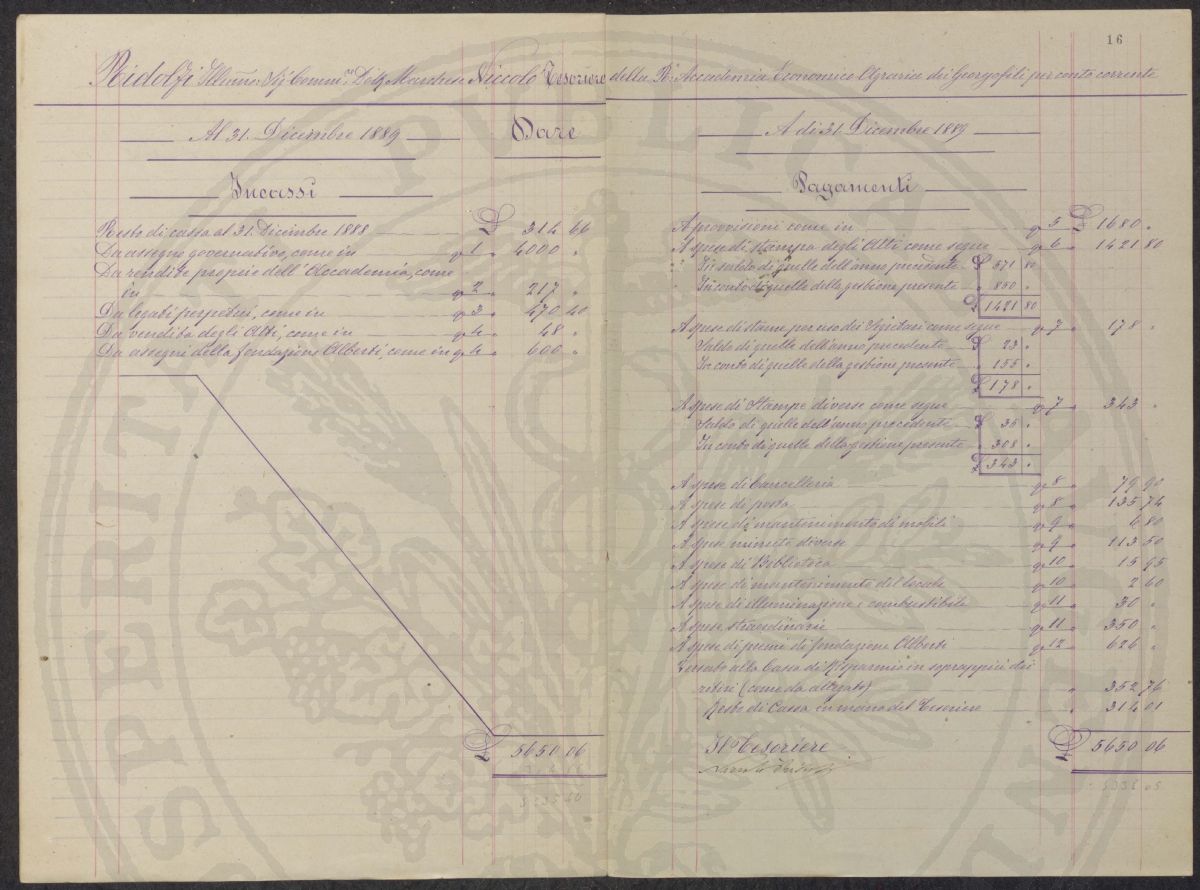 16
Ridolfi Illmo Sig. Comm. Dott. Marchese Niccolò Tesoriere della R. Accademia Economico Agraria dei Georgofili per conto corrente
Al 31. Dicembre 1889 Dare
Incassi
Resto di cassa al 31. Dicembre 1888 £ 314 66
Da assegno governativo, come in 1 " 4000 "
Da rendite proprie dell'Accademia, come
in 2 " 217 "
Da legati perpetui, come in 3 " 470 40
Da vendita degli Atti, come in 4 " 48 "
Da assegni della fondazione Alberti, come in 4 " 600 "
£ 5650 06
A di 31. Dicembre 1889
Pagamenti
A provvisioni come in 5 £ 1680 "
A spese di stampa degli Atti come segue 6 " 1421 80
In saldo di quelle dell'anno precedente £ 571 80
In conto di quelle della gestione presente " 850 "
£ 1421 80
A spese di stampe per uso dei Segretari come segue 7 " 178 "
Saldo di quelle dell'anno precedente £ 23 "
In conto di quelle della gestione presente " 155 "
£ 178 "
A spese di Stampe diverse come segue 7 " 343 "
Saldo di quelle dell'anno precedente £ 35 "
In conto di quelle della gestione presente " 308 "
£ 343 "
A spese di Cancelleria 8 " 79 90
A spese di posta 8 " 135 74
A spese di mantenimento di mobili 9 " 6 80
A spese minute diverse 9 " 113 50
A spese di Biblioteca 10 " 15 95
A spese di mantenimento del locale 10 " 2 60
A spese di illuminazione e combustibile 11 " 30 "
A spese straordinarie 11 " 350 "
A spese di premi di fondazione Alberti 12 " 626 "
Versato alla Cassa di Risparmio in soprappiù dei
ritiri (come da allegato) " 352 76
Resto di Cassa in mano del Tesoriere " 314 01
Il Tesoriere £ 5650 06
PERITA PUBLICA